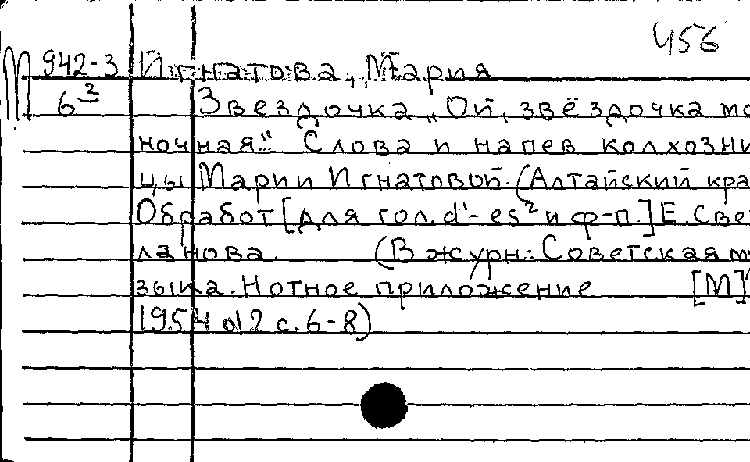 456
М 942-3 Игнатова, Мария
6² Звездочка „Ой, звёздочка мо
ночная". Слова и напев колхозни
цы Марии Игнатовой. (Алтайский кра
Обработ [для гол. d'-es² и ф-п.] Е. Све
ланова (В журн: Советская м
зыка. Нотное приложение [М]
1954 №12 с. 6-8)